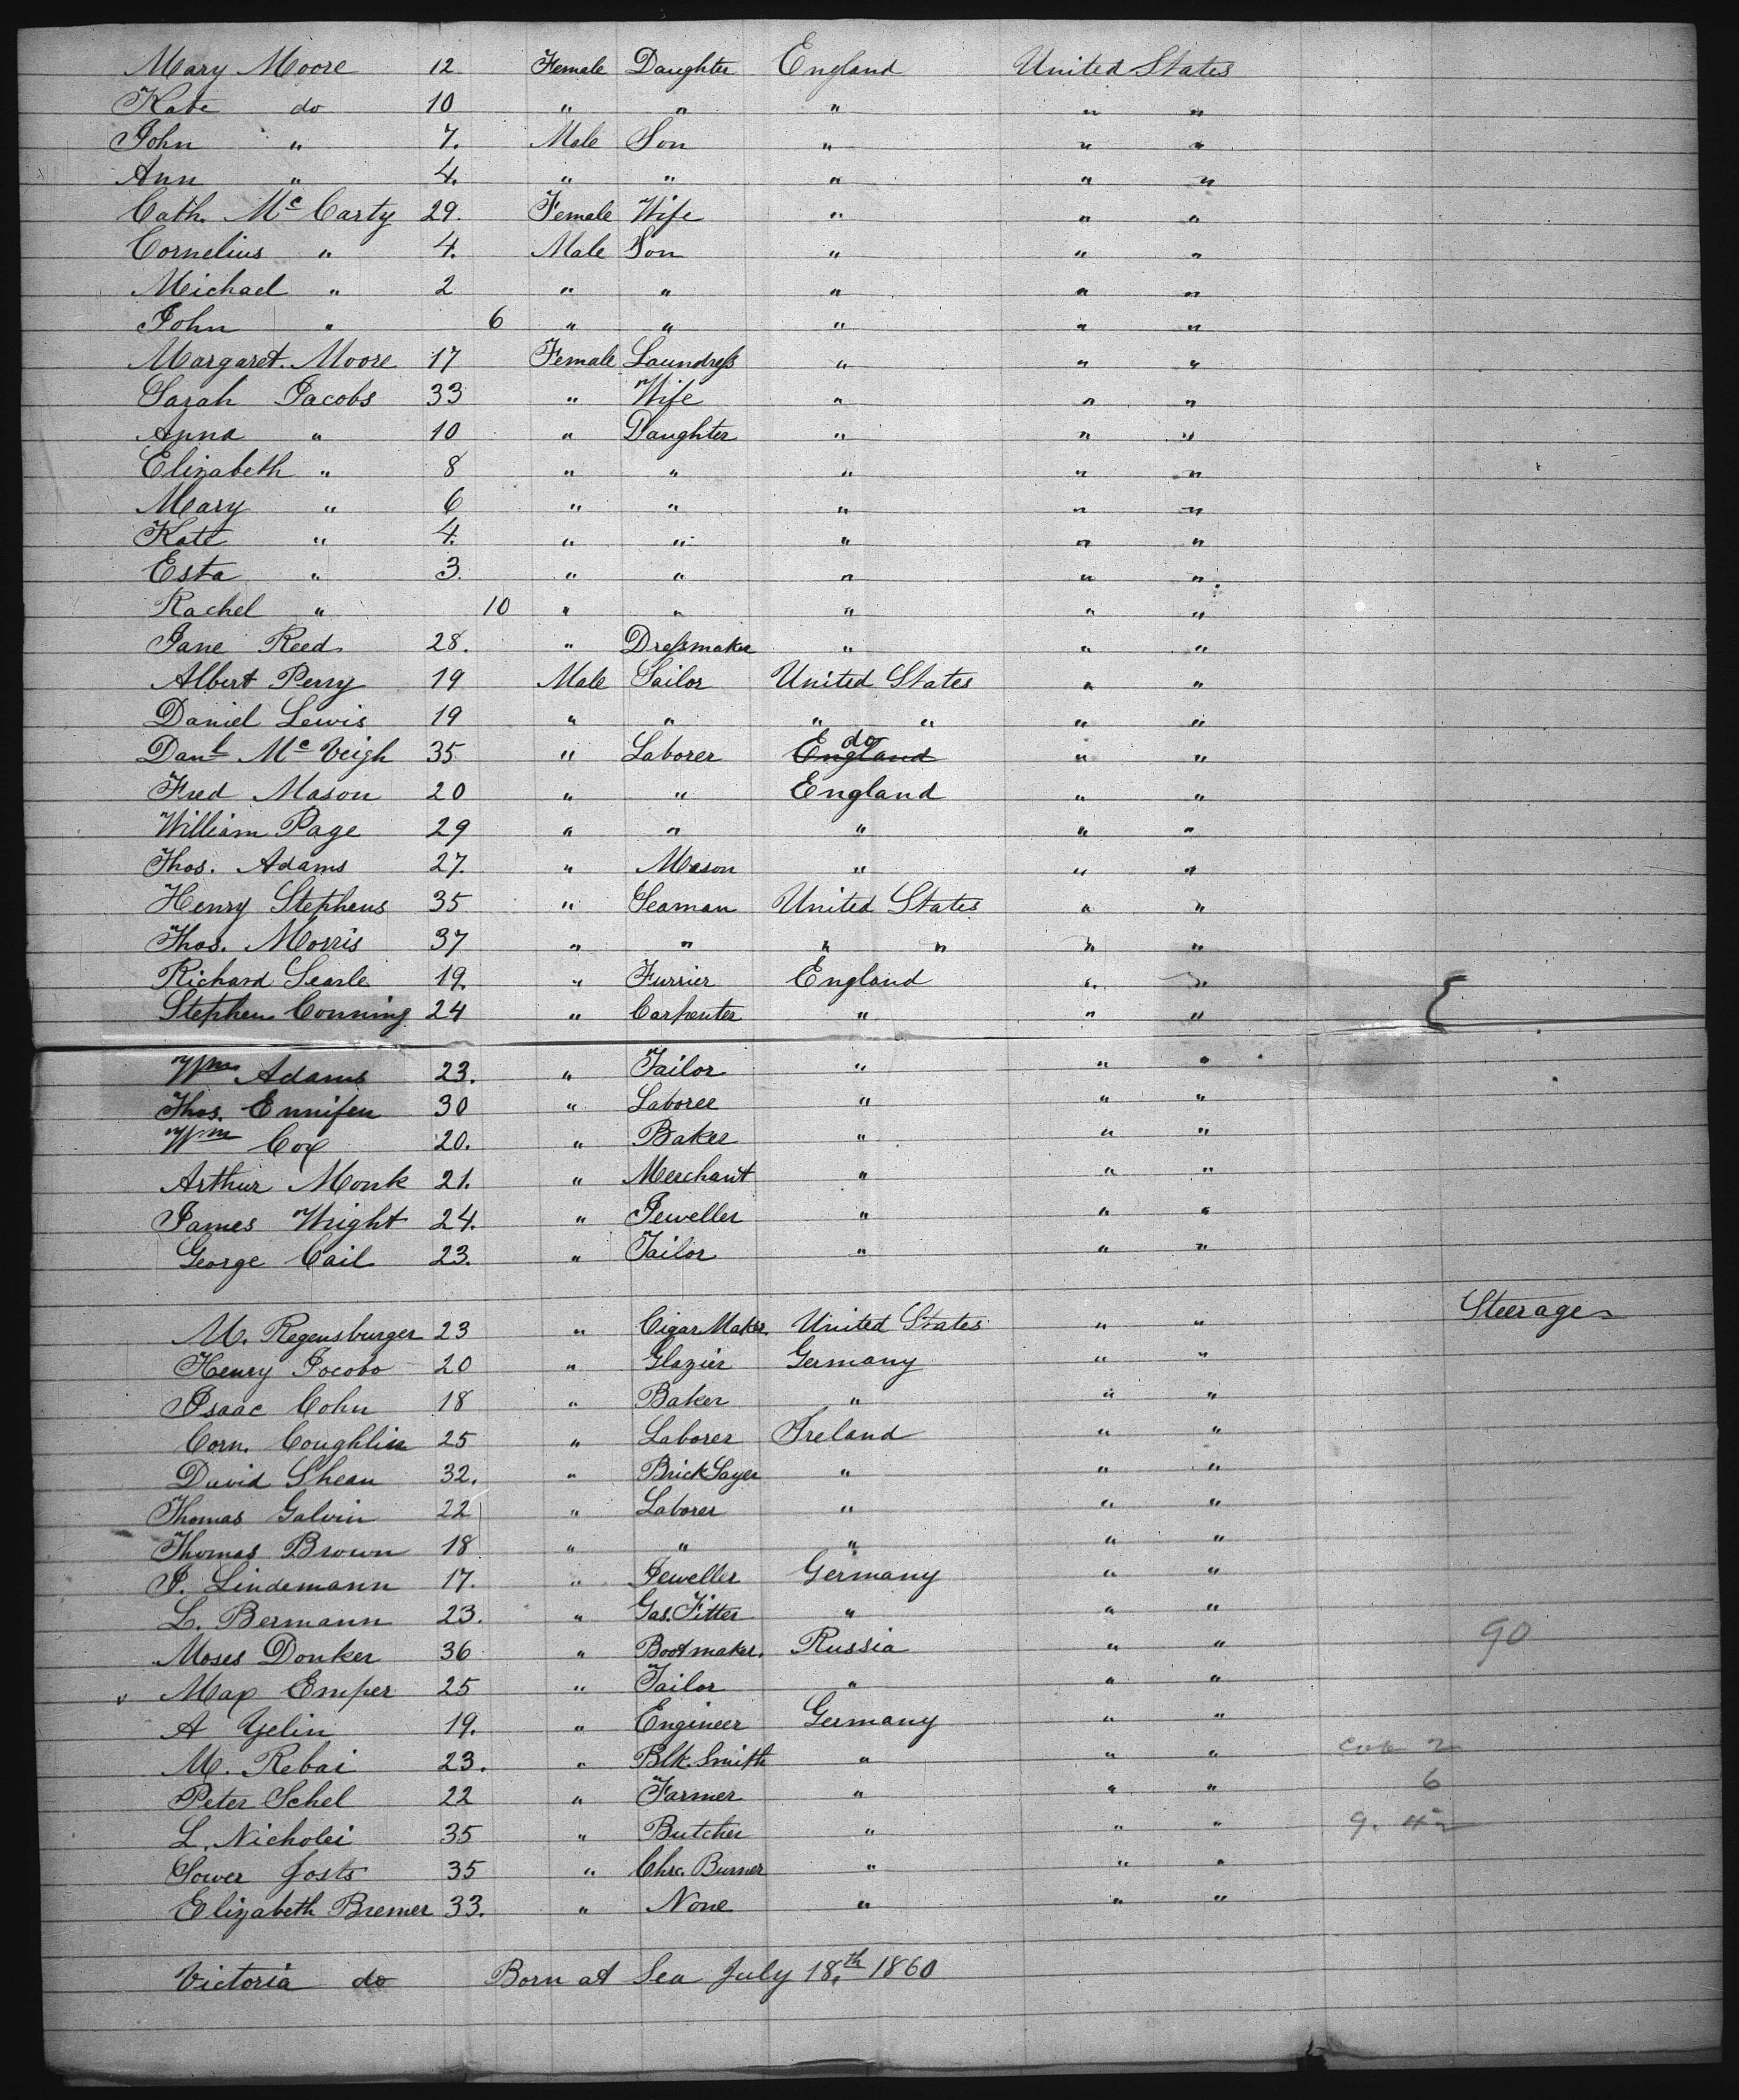 Mary Moore 12 Female Daughter England United States
Kate do 10 " " " " "
John " 7. Male Son " " "
Ann " 4. " " " " "
Cath. McCarty 29. Female Wife " " "
Cornelius " 4. Male Son " " "
Michael " 2 " " " " "
John " 6 " " " " "
Margaret. Moore 17 Female Laundress " " "
Sarah Jacobs 33 " Wife " " "
Anna " 10 " Daughter " " "
Elizabeth " 8 " " " " "
Mary " 6 " " " " "
Kate " 4. " " " " "
Esta " 3. " " " " "
Rachel " 10 " " " " "
Jane Reed 28. " Dressmaker " " "
Albert Perry 19 Male Sailor United States " "
Daniel Lewis 19 " " " " " "
Danl McVeigh 35 " Laborer England do " "
Fred Mason 20 " " England " "
William Page 29 " " " " "
Thos. Adams 27. " Mason " " "
Henry Stephens 35 " Seaman United States " "
Thos. Morris 37 " " " " " "
Richard Searle 19. " Furrier England " "
Stephen Conning 24 " Carpenter " " "
Wm Adams 23. " Tailor " " "
Thos. Ennifen 30 " Laborer " " "
Wm Cox 20. " Baker " " "
Arthur Monk 21. " Merchant " " "
James Wright 24. " Jeweller " " "
George Cail 23. " Tailor " " "
Steerage
M. Regensburger 23 " Cigar Maker. United States " "
Henry Jocobo 20 " Glazier Germany " "
Isaac Cohn 18 " Baker " " "
Corn. Coughlin 25 " Laborer Ireland " "
David Shean 32. " Brick Layer " " "
Thomas Galvin 22 " Laborer " " "
Thomas Brown 18 " " " " "
J. Lindemann 17. " Jeweller Germany " "
L. Bermann 23. " Gas. Fitter " " "
Moses Donker 36 " Bootmaker. Russia " " 90
Max Emper 25 " Tailor " " "
A Yelin 19. " Engineer Germany " "
M. Rebai 23. " Blk. Smith " " "
Peter Schel 22 " Farmer " " " 6
L. Nicholei 35 " Butcher " " "
Sower Josts 35 " Chrc. Burner " " "
Elizabeth Bremer 33. " None " " "
Victoria do Born at Sea July 18.th 1860